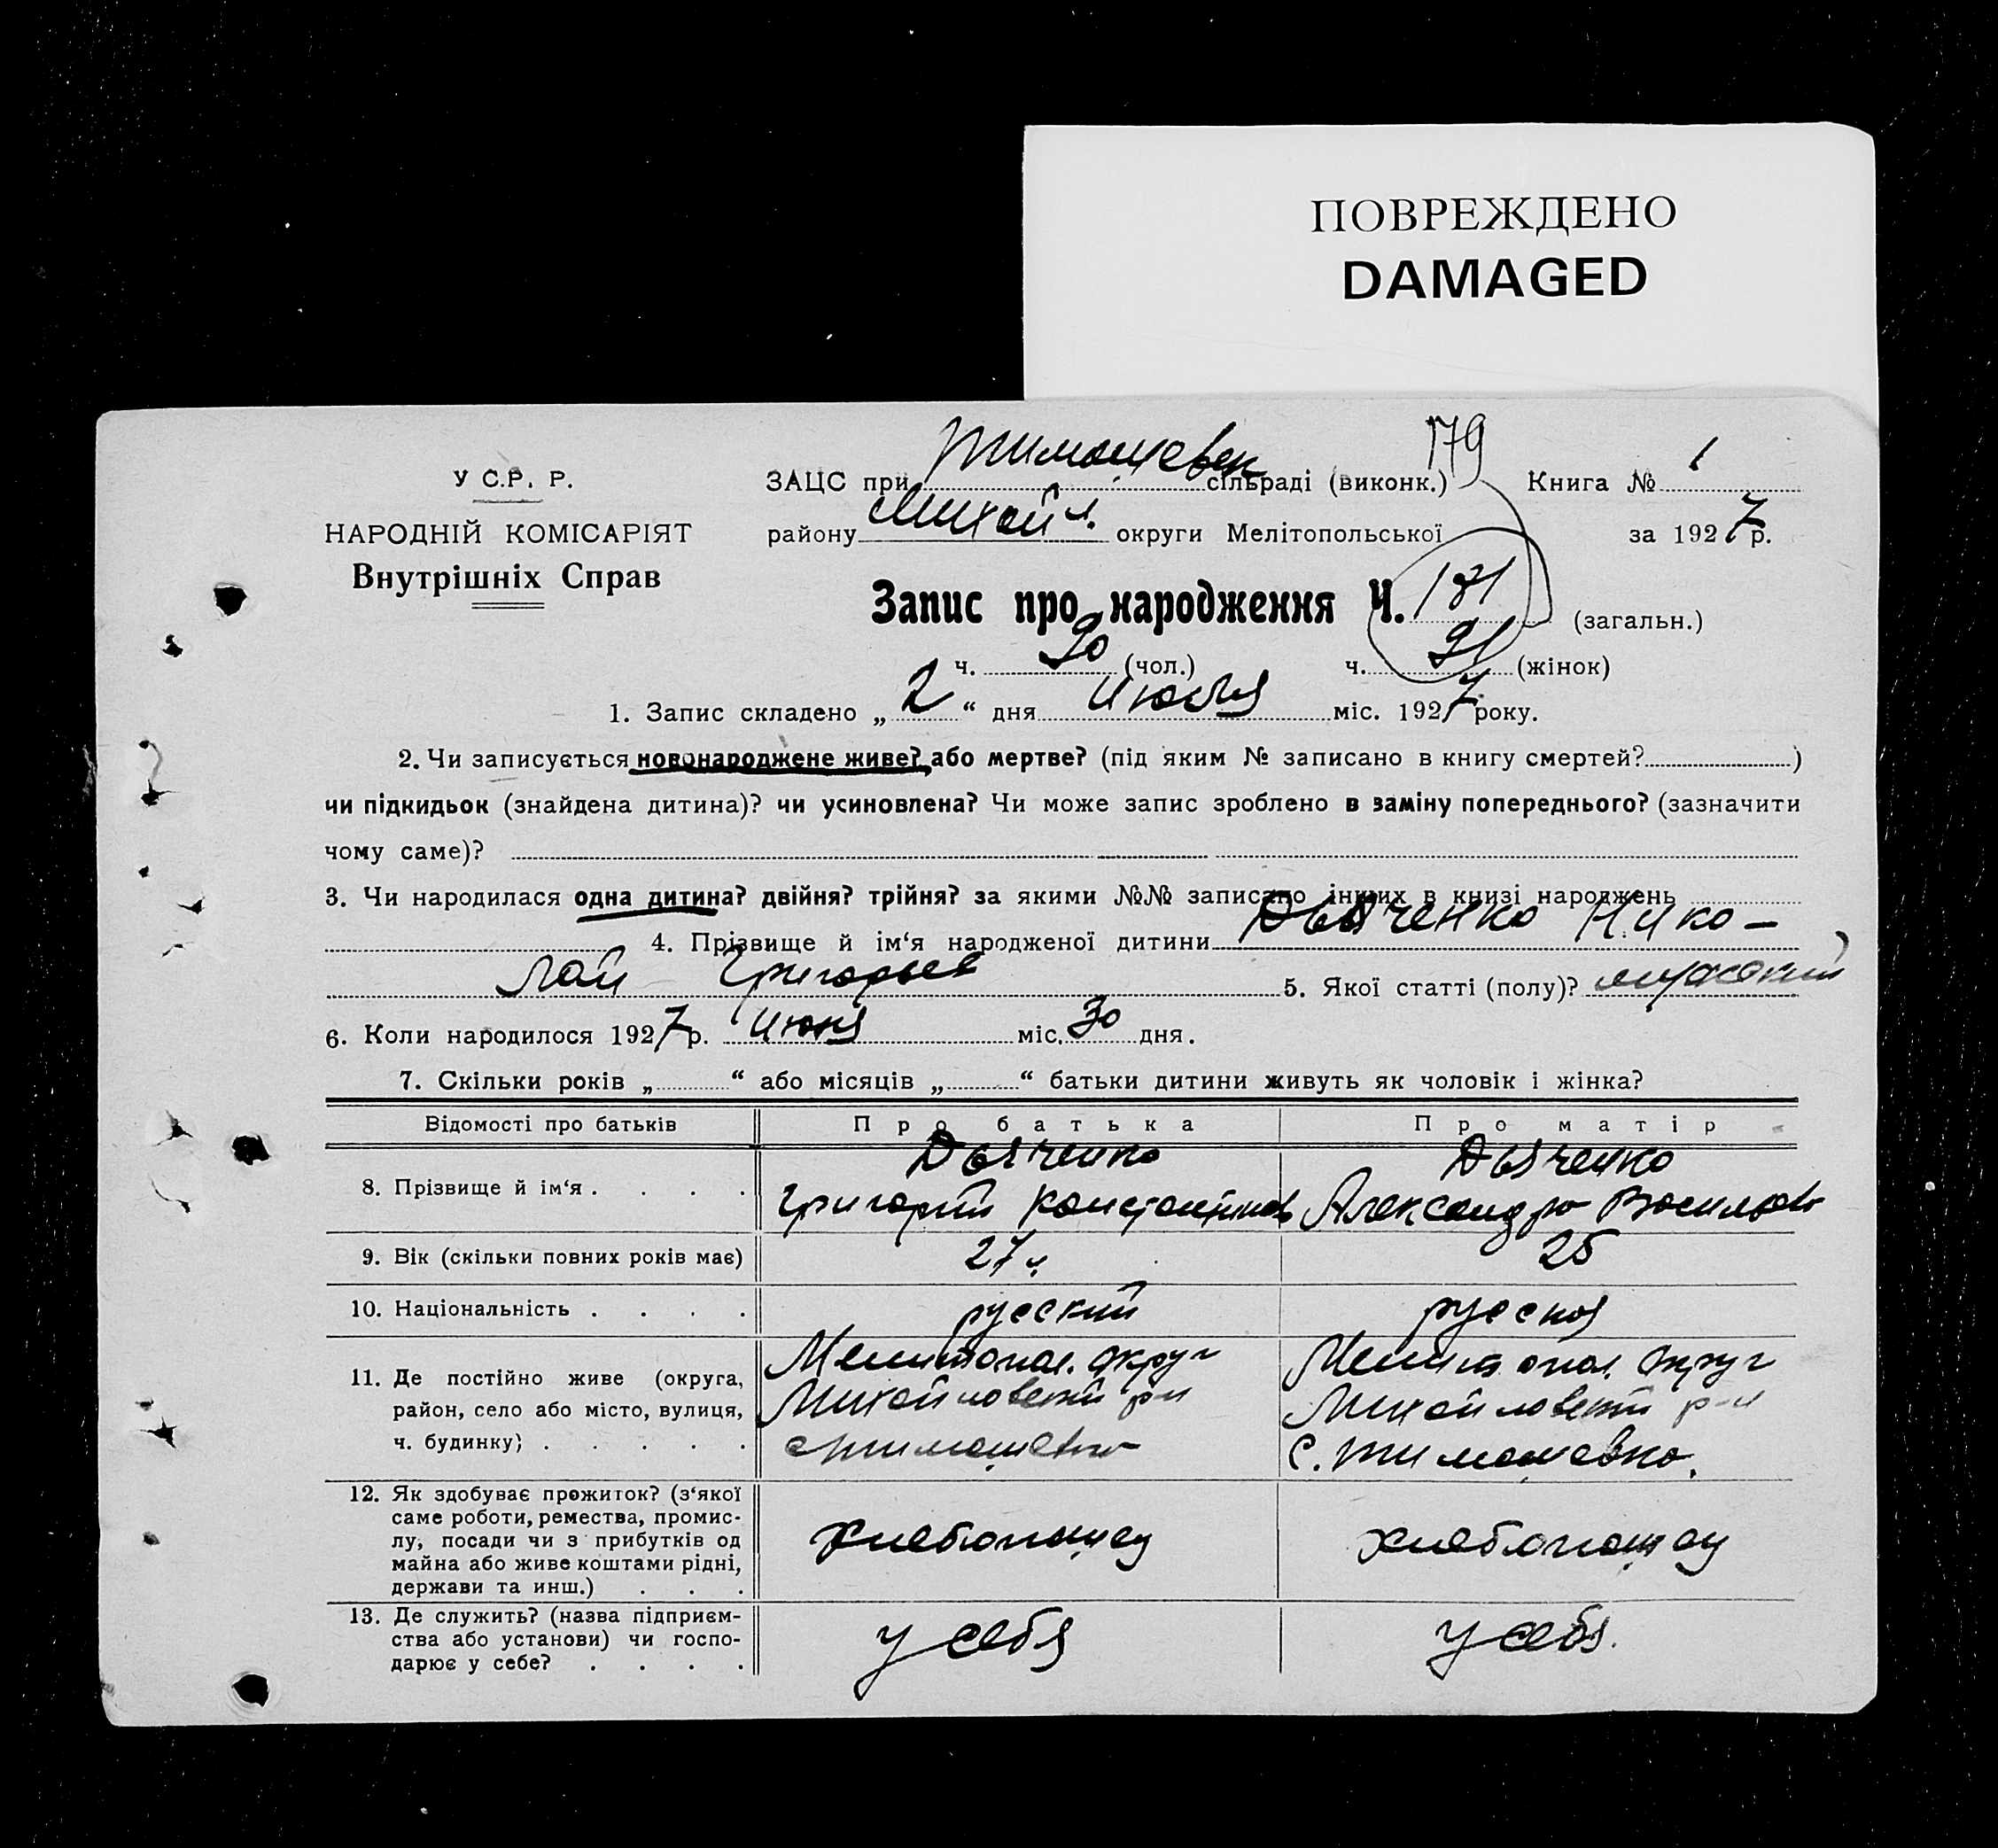 ПОВРЕЖДЕНО
DAMAGED
У С.Р. Р.
НАРОДНІЙ КОМІСАРІЯТ
Внутрішніх Справ
179
ЗАЦС при Тимошевск сільраді (виконк.) Книга № 1
району Михайл. округи Мелітопольської за 1927 р.
Запис про народження Ч. 181 (загальн.)
ч. 90 (чол.) ч. 91 (жінок)
1. Запис складено „ 2 “ дня Июля міс. 1927 року.
2. Чи записується новонароджене живе? або мертве? (під яким № записано в книгу смертей? )
чи підкидьок (знайдена дитина)? чи усиновлена? Чи може запис зроблено в заміну попереднього? (зазначити
чому саме)?
3. Чи народилася одна дитина? двійня? трійня? за якими №№ записано інших в книзі народжень
4. Прізвище й ім‘я народженої дитини Дьяченко Нико-
лай Григорьев 5. Якої статті (полу)? мужский
6. Коли народилося 1927 р. Июня міс. 30 дня.
7. Скільки років „ “ або місяців „ “ батьки дитини живуть як чоловік і жінка?
Відомості про батьків Про батька Про матір
8. Прізвище й ім‘я . . . . Дьяченко Григорий Константинов Дьяченко Александра Васильев
9. Вік (скільки повних років має) 27 25
10. Національність . . . . русский русская
11. Де постійно живе (округа, Мелитопол. округ Мелитопол. округ
район, село або місто, вулиця, Михайловский р-н Михайловский р-н
ч. будинку) . . . . . с Тимошевка с. Тимошевка.
12. Як здобуває прожиток? (з‘якої
саме роботи, ремества, промис-
лу, посади чи з прибутків од хлебопашец хлебопашец
майна або живе коштами рідні,
держави та инш.) . . .
13. Де служить? (назва підприєм-
ства або установи) чи госпо- у себя у себя.
дарює у себе? . . . .